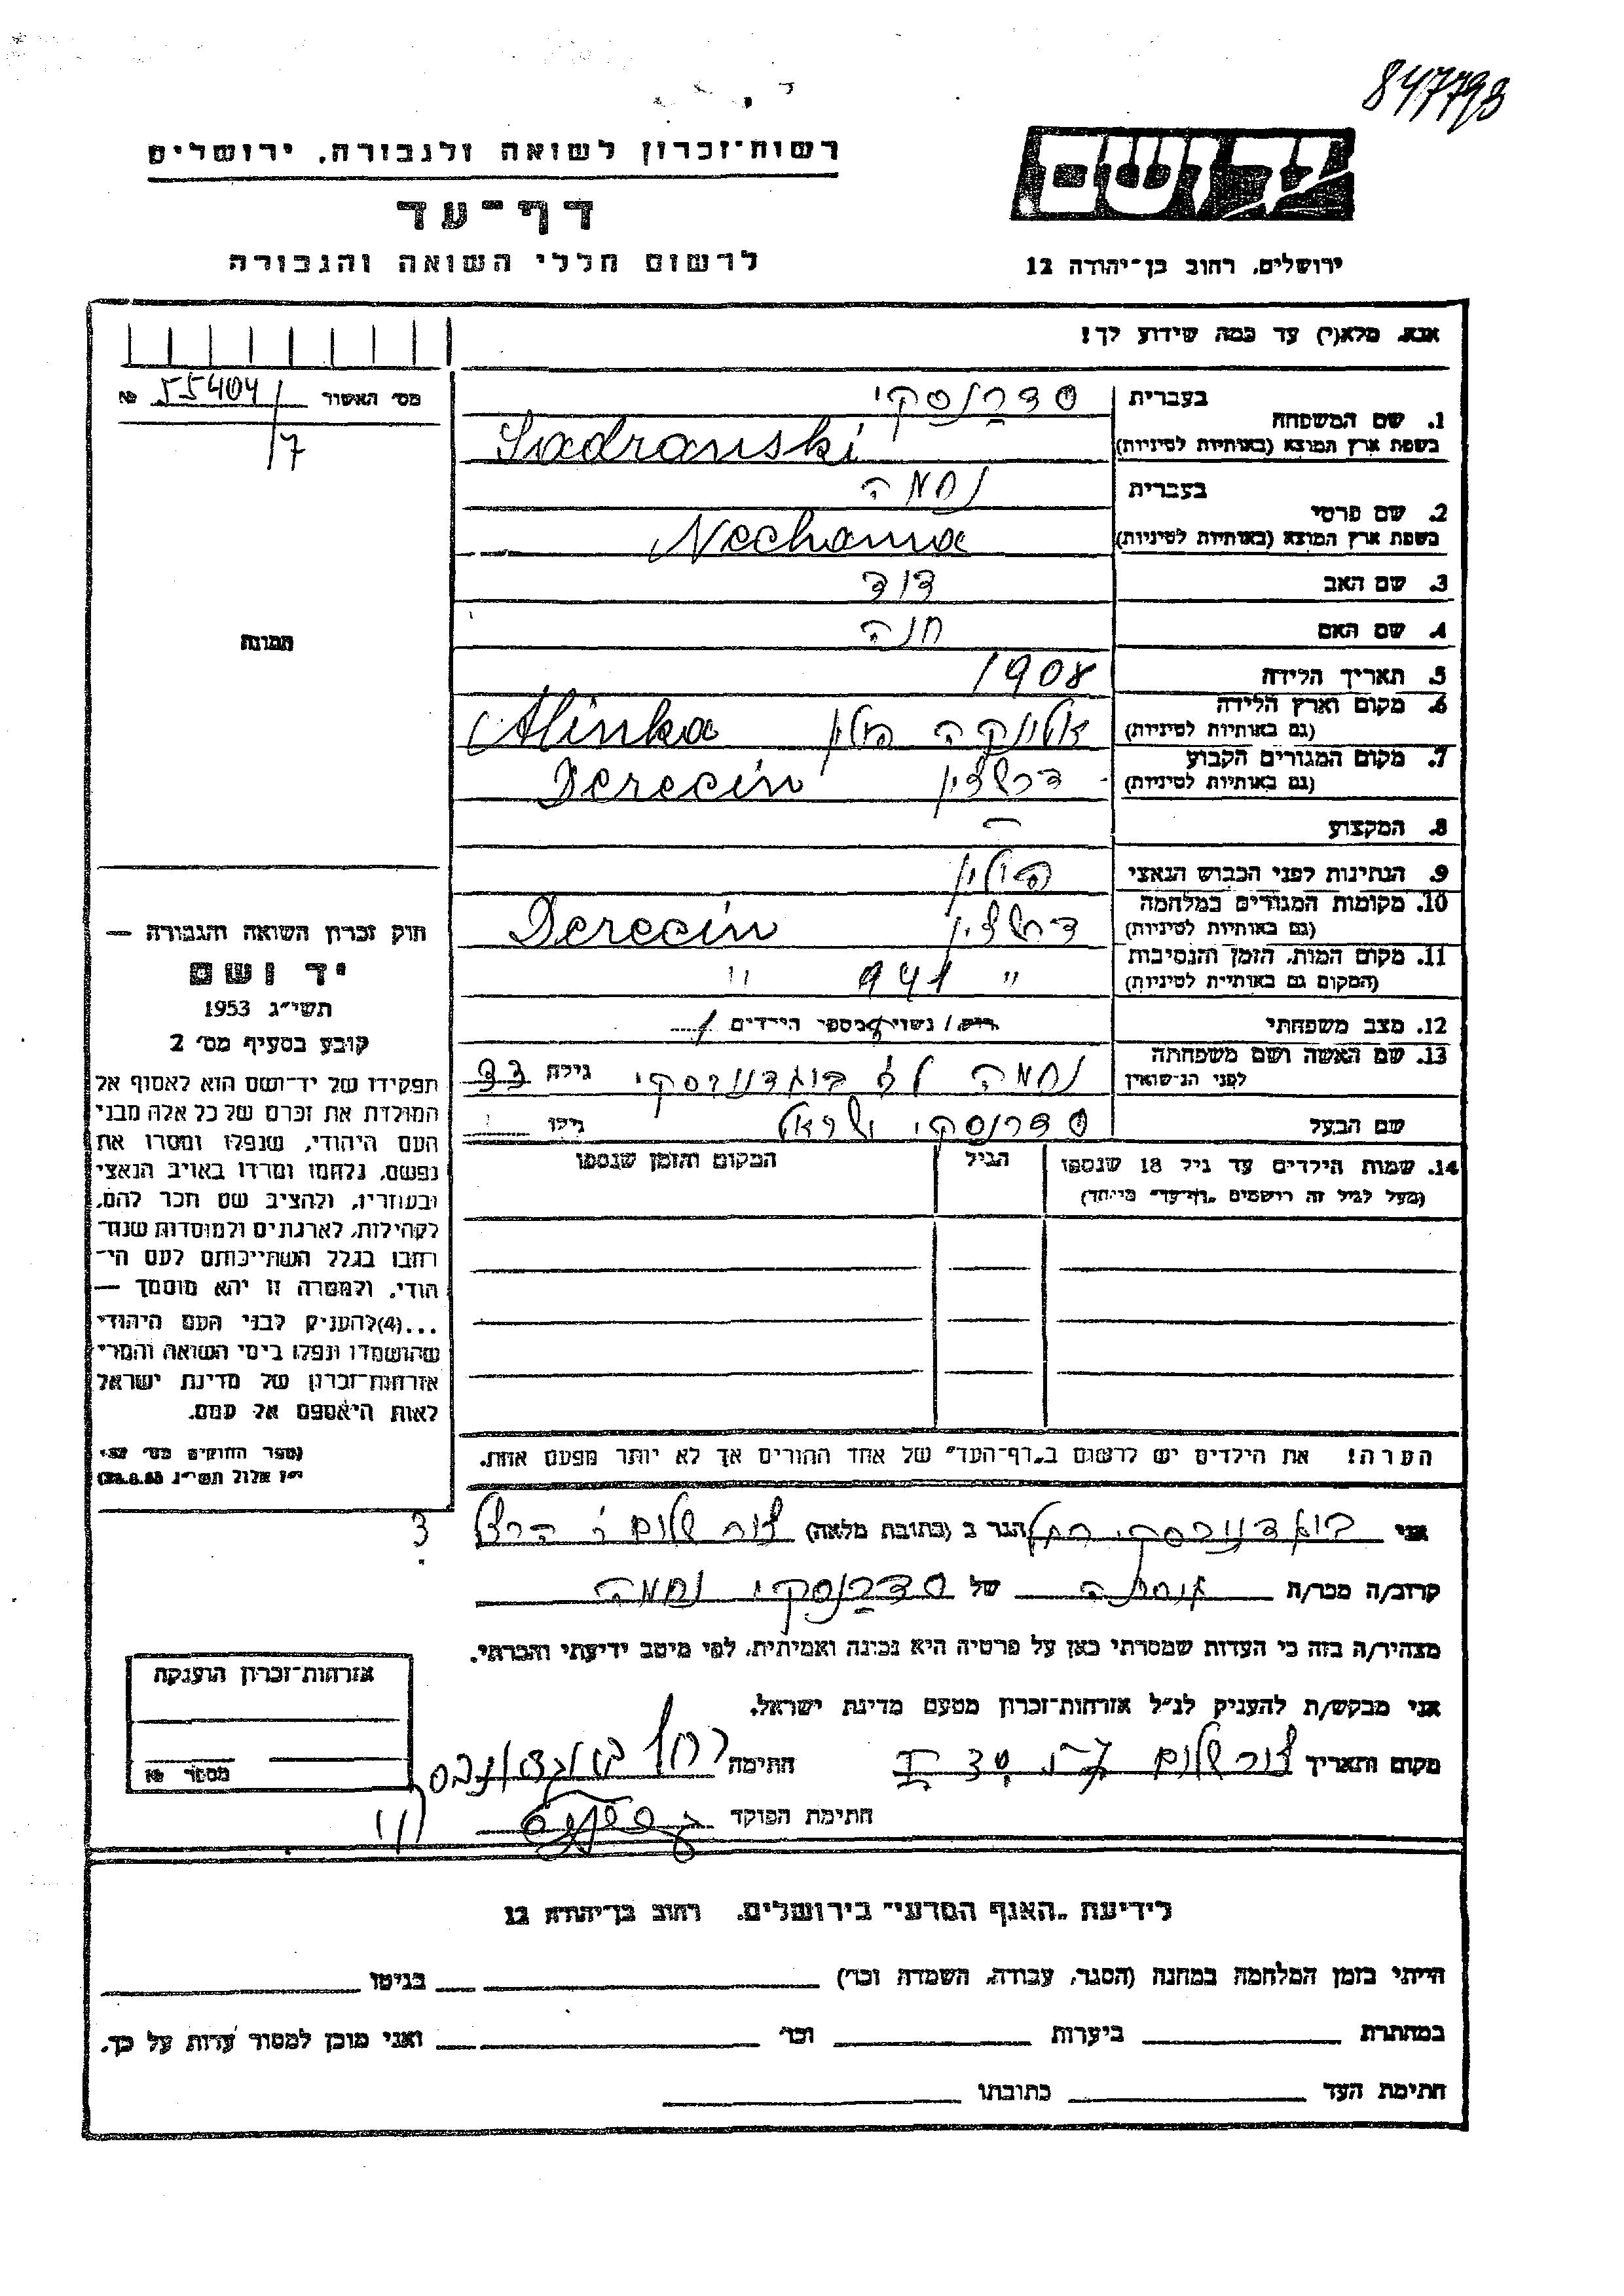 847793
רשות־זכרון לשואה ולגבורה, ירושלים
דף־עד
לרשום חללי השואה והגבורה
יד ושם
ירושלים, רחוב בן־יהודה 12
אנא, מלא(י) עד כמה שידוע לך!
מס' האשור 55404/ №
/7
תמונה
1. שם המשפחה
בעברית סדרנסקי
בשפת ארץ המוצא (באותיות לטיניות) Sadranski
2. שם פרטי
בעברית נחמה
בשפת ארץ המוצא (באותיות לטיניות) Nechama
3. שם האב דוד
4. שם האם חנה
5. תאריך הלידה 1908
6. מקום וארץ הלידה
(גם באותיות לטיניות) אלינקה פולין Alinka
7. מקום המגורים הקבוע
(גם באותיות לטיניות) דרצין Derecin
8. המקצוע —
9. הנתינות לפני הכבוש הנאצי פולין
10. מקומות המגורים במלחמה
(גם באותיות לטיניות) דרצין Derecin
11. מקום המות, הזמן והנסיבות
(המקום גם באותיות לטיניות) " 941 "
12. מצב משפחתי רוק/ נשוי/ מספר הילדים 1
13. שם האשה ושם משפחתה
לפני הנישואין נחמה לב גילה 33
שם הבעל סדרנסקי ישראל גילו
14. שמות הילדים עד גיל 18 שנספו הגיל המקום והזמן שנספו
(מעל לגיל זה רושמים „דף־עד" מיוחד)
הערה! את הילדים יש לרשום ב„דף־העד" של אחד ההורים אך לא יותר מפעם אחת.
חוק זכרון השואה והגבורה —
יד ושם
תשי"ג 1953
קובע בסעיף מס' 2
תפקידו של יד־ושם הוא לאסוף אל
המולדת את זכרם של כל אלה מבני
העם היהודי, שנפלו ומסרו את
נפשם, נלחמו ומרדו באויב הנאצי
ובעוזריו, ולהציב שם וזכר להם,
לקהילות, לארגונים ולמוסדות שנח־
רבו בגלל השתייכותם לעם הי־
הודי, ולמטרה זו יהא מוסמך —
...(4)להעניק לבני העם היהודי
שהושמדו ונפלו בימי השואה והמרי
אזרחות־זכרון של מדינת ישראל
לאות היאספם אל עמם.
(ספר החוקים מס' 132,
י"ז אלול תשי"ג 28.8.53)
אני רחל הגר ב (כתובת מלאה) צור שלום
קרוב/ה מכר/ה של סדרנסקי נחמה
מצהיר/ה בזה כי העדות שמסרתי כאן על פרטיה היא נכונה ואמיתית, לפי מיטב ידיעתי והכרתי.
אני מבקש/ת להעניק לנ"ל אזרחות־זכרון מטעם מדינת ישראל.
מקום ותאריך צור שלום חתימה רחל
חתימת הפוקד
אזרחות־זכרון הוענקה
מספר №
לידיעת „האגף המדעי" בירושלים, רחוב בן־יהודה 12
הייתי בזמן המלחמה במחנה (הסגר, עבודה, השמדה וכו') בגיטו
במחתרת ביערות וכו' ואני מוכן למסור עדות על כך.
חתימת העד כתובתו